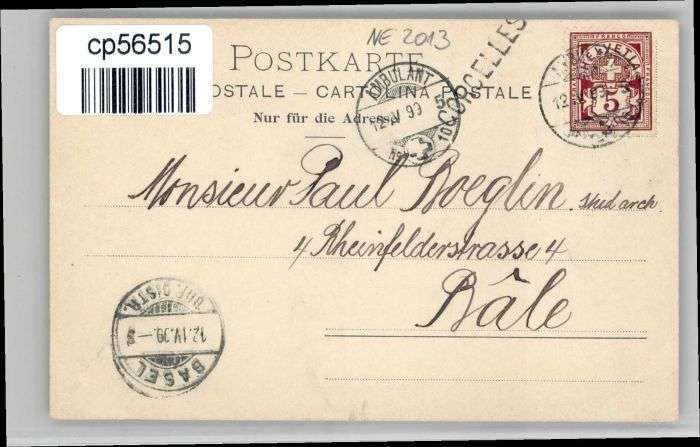 cp56515
NE 2013
CORCELLES
POSTKARTE
POSTALE — CARTOLINA POSTALE
Nur für die Adresse
AMBULANT
12.IV 99
No 10
FRANCO
HELVETIA
5
12.IV 99
Monsieur Paul Boeglin, stud arch
4 Rheinfelderstrasse 4
Bâle
BRF. DISTR.
12.IV.99.–
BASEL